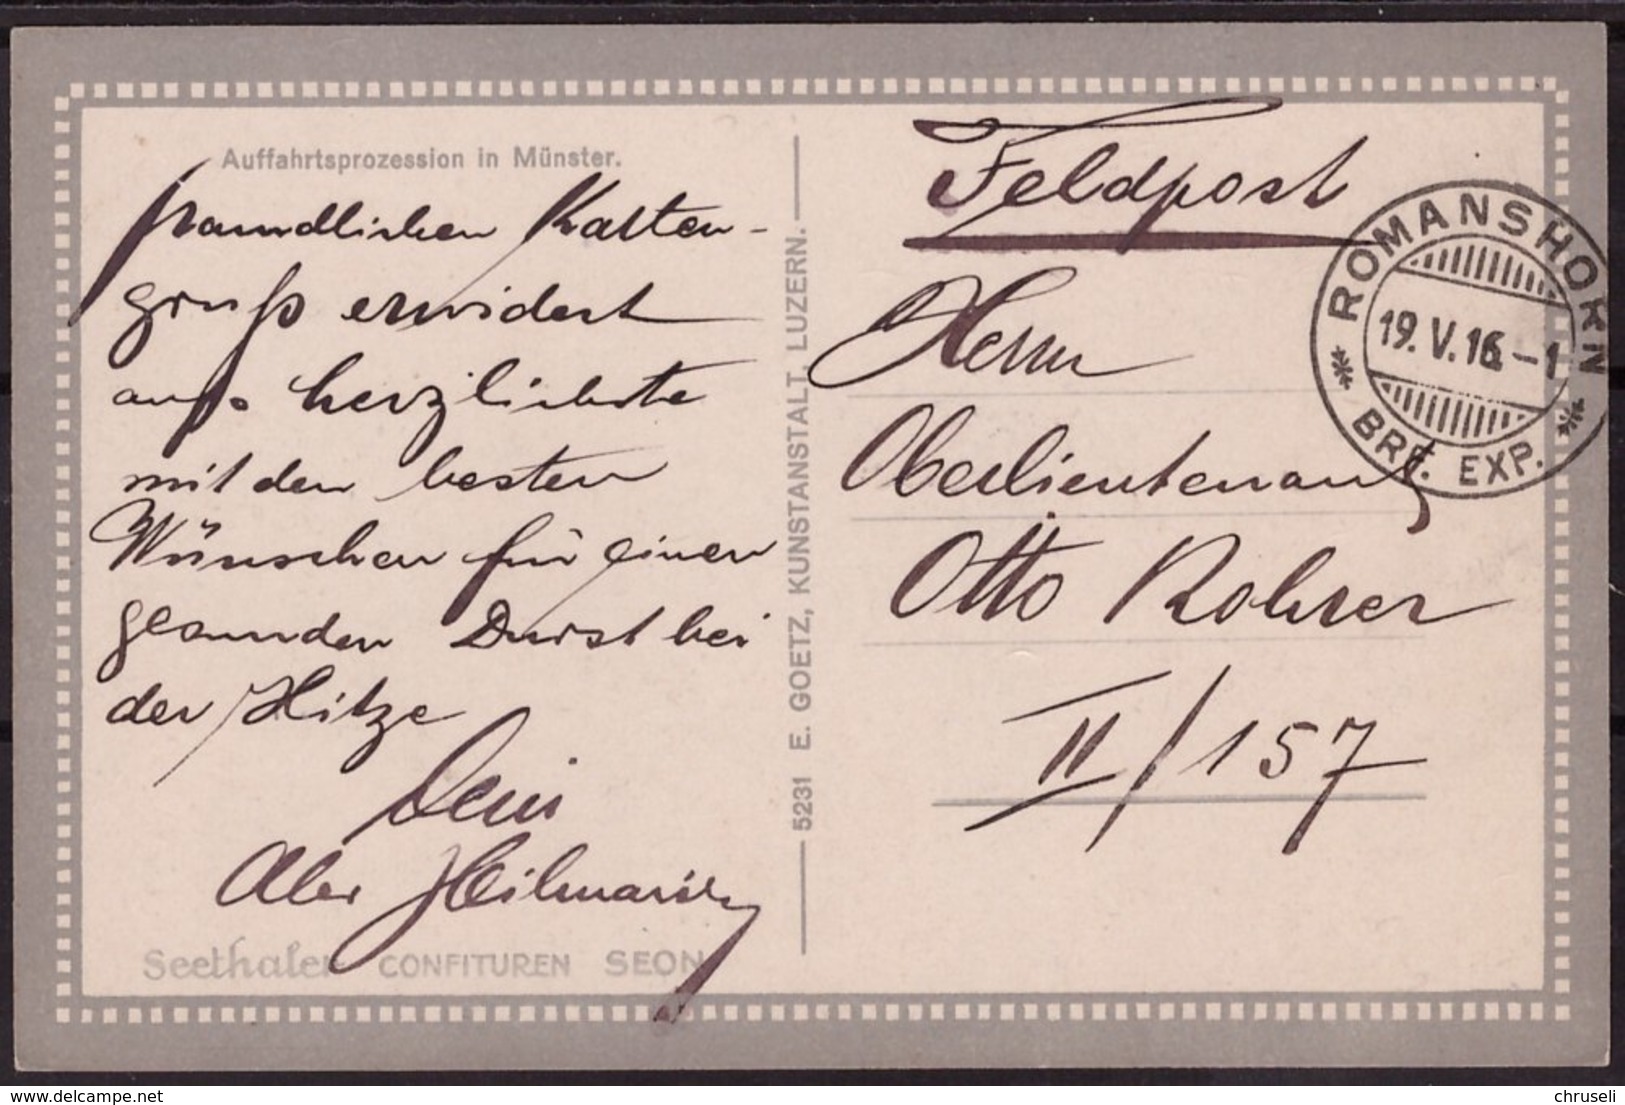 Auffahrtsprozession in Münster.
freundlichen Karten-
gruß erwidert
aufs herzlichste
mit den besten
Wünschen für einen
gesunden Durst bei
der Hitze
Dein
Seethaler CONFITUREN SEON
5231 E. GOETZ, KUNSTANSTALT, LUZERN.
Feldpost
Herrn
Oberlieutenant
Otto Rohrer
II/157
ROMANSHORN
19.V.16.-1
BRF. EXP.
delcampe.net
chruseli